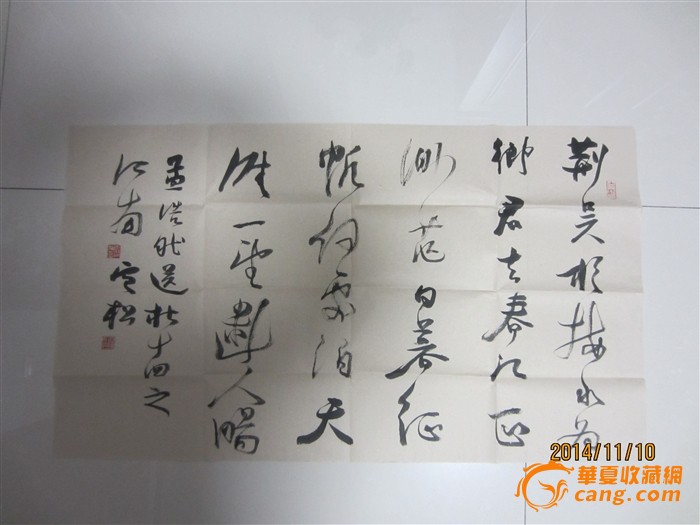 荆吴相接水為
鄉君去春江正
渺茫日暮征
帆何處泊天
涯一望斷人腸
孟浩然送杜十四之
江南
2014/11/10
華夏收藏網
cang.com